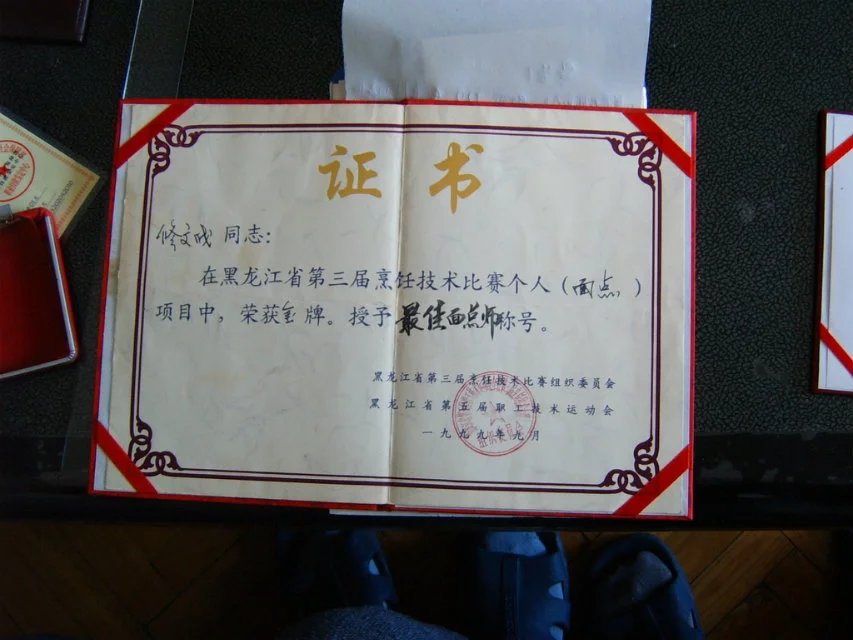 证书
修文成 同志:
在黑龙江省第三届烹饪技术比赛个人(面点)
项目中,荣获金牌。授予最佳面点师称号。
黑龙江省第三届烹饪技术比赛组织委员会
黑龙江省第五届职工技术运动会
一九九九年九月